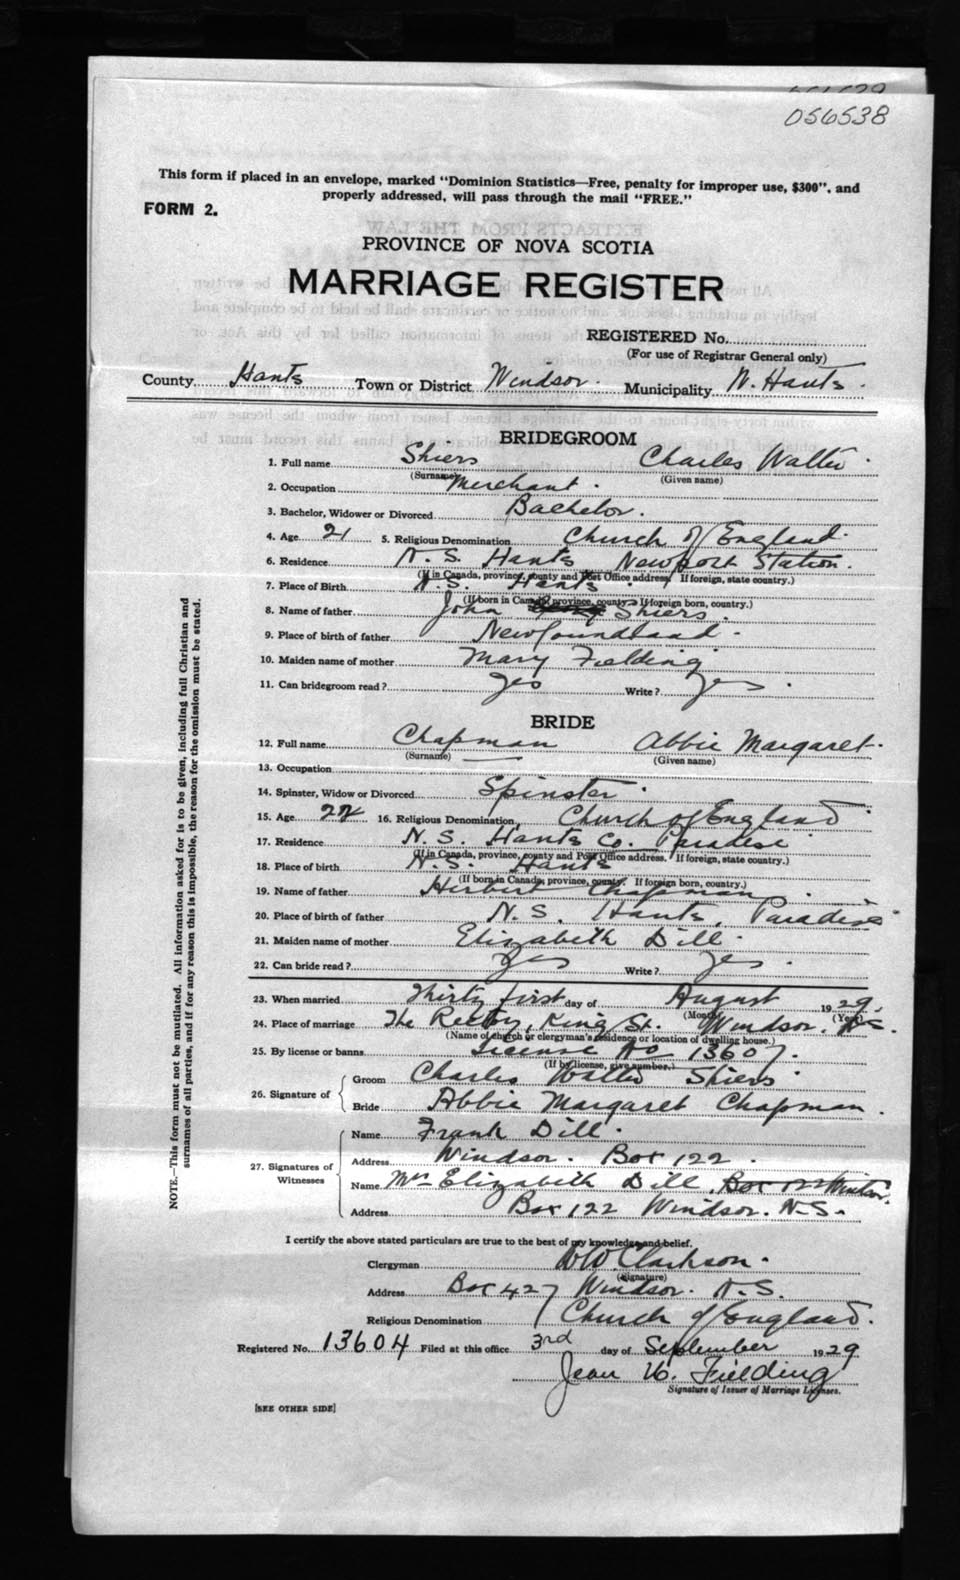 056538
This form if placed in an envelope, marked "Dominion Statistics—Free, penalty for improper use, $300", and
properly addressed, will pass through the mail "FREE."
FORM 2.
PROVINCE OF NOVA SCOTIA
MARRIAGE REGISTER
REGISTERED No.
(For use of Registrar General only)
County Hants Town or District Windsor. Municipality W. Hants.
BRIDEGROOM
1. Full name Shiers Charles Walter
(Surname) (Given name)
2. Occupation Merchant.
3. Bachelor, Widower or Divorced Bachelor.
4. Age 21 5. Religious Denomination Church of England.
6. Residence N. S. Hants Newport Station.
(If in Canada, province, county and Post Office address. If foreign, state country.)
7. Place of Birth N.S. Hants
(If born in Canada, province, county. If foreign born, country.)
8. Name of father John Shiers.
9. Place of birth of father Newfoundland.
10. Maiden name of mother Mary Fielding
11. Can bridegroom read? yes Write? yes.
BRIDE
12. Full name Chapman Abbie Margaret.
(Surname) (Given name)
13. Occupation
14. Spinster, Widow or Divorced Spinster.
15. Age 22 16. Religious Denomination Church of England
17. Residence N. S. Hants Co. Paradise
(If in Canada, province, county and Post Office address. If foreign, state country.)
18. Place of birth N.S. Hants
(If born in Canada, province, county. If foreign born, country.)
19. Name of father Herbert Chapman
20. Place of birth of father N.S. Hants, Paradise
21. Maiden name of mother Elizabeth Dill.
22. Can bride read? yes Write? yes.
23. When married Thirty first day of August 1929.
(Month) (Year)
24. Place of marriage The Rectory, King St. Windsor. N.S.
(Name of church or clergyman's residence or location of dwelling house.)
25. By license or banns License No 13607.
(If by license, give number.)
26. Signature of
Groom Charles Walter Shiers
Bride Abbie Margaret Chapman.
27. Signatures of Witnesses
Name Frank Dill.
Address Windsor. Box 122.
Name Mrs Elizabeth Dill, Box 122 Windsor.
Address Box 122 Windsor. N.S.
I certify the above stated particulars are true to the best of my knowledge and belief.
Clergyman Clarkson.
(Signature)
Address Box 427 Windsor. N.S.
Religious Denomination Church of England.
Registered No. 13604 Filed at this office 3rd day of September 1929
Jean Fielding
Signature of Issuer of Marriage Licenses.
[SEE OTHER SIDE]
NOTE.—This form must not be mutilated. All information asked for is to be given, including full Christian and
surnames of all parties, and if for any reason this is impossible, the reason for the omission must be stated.